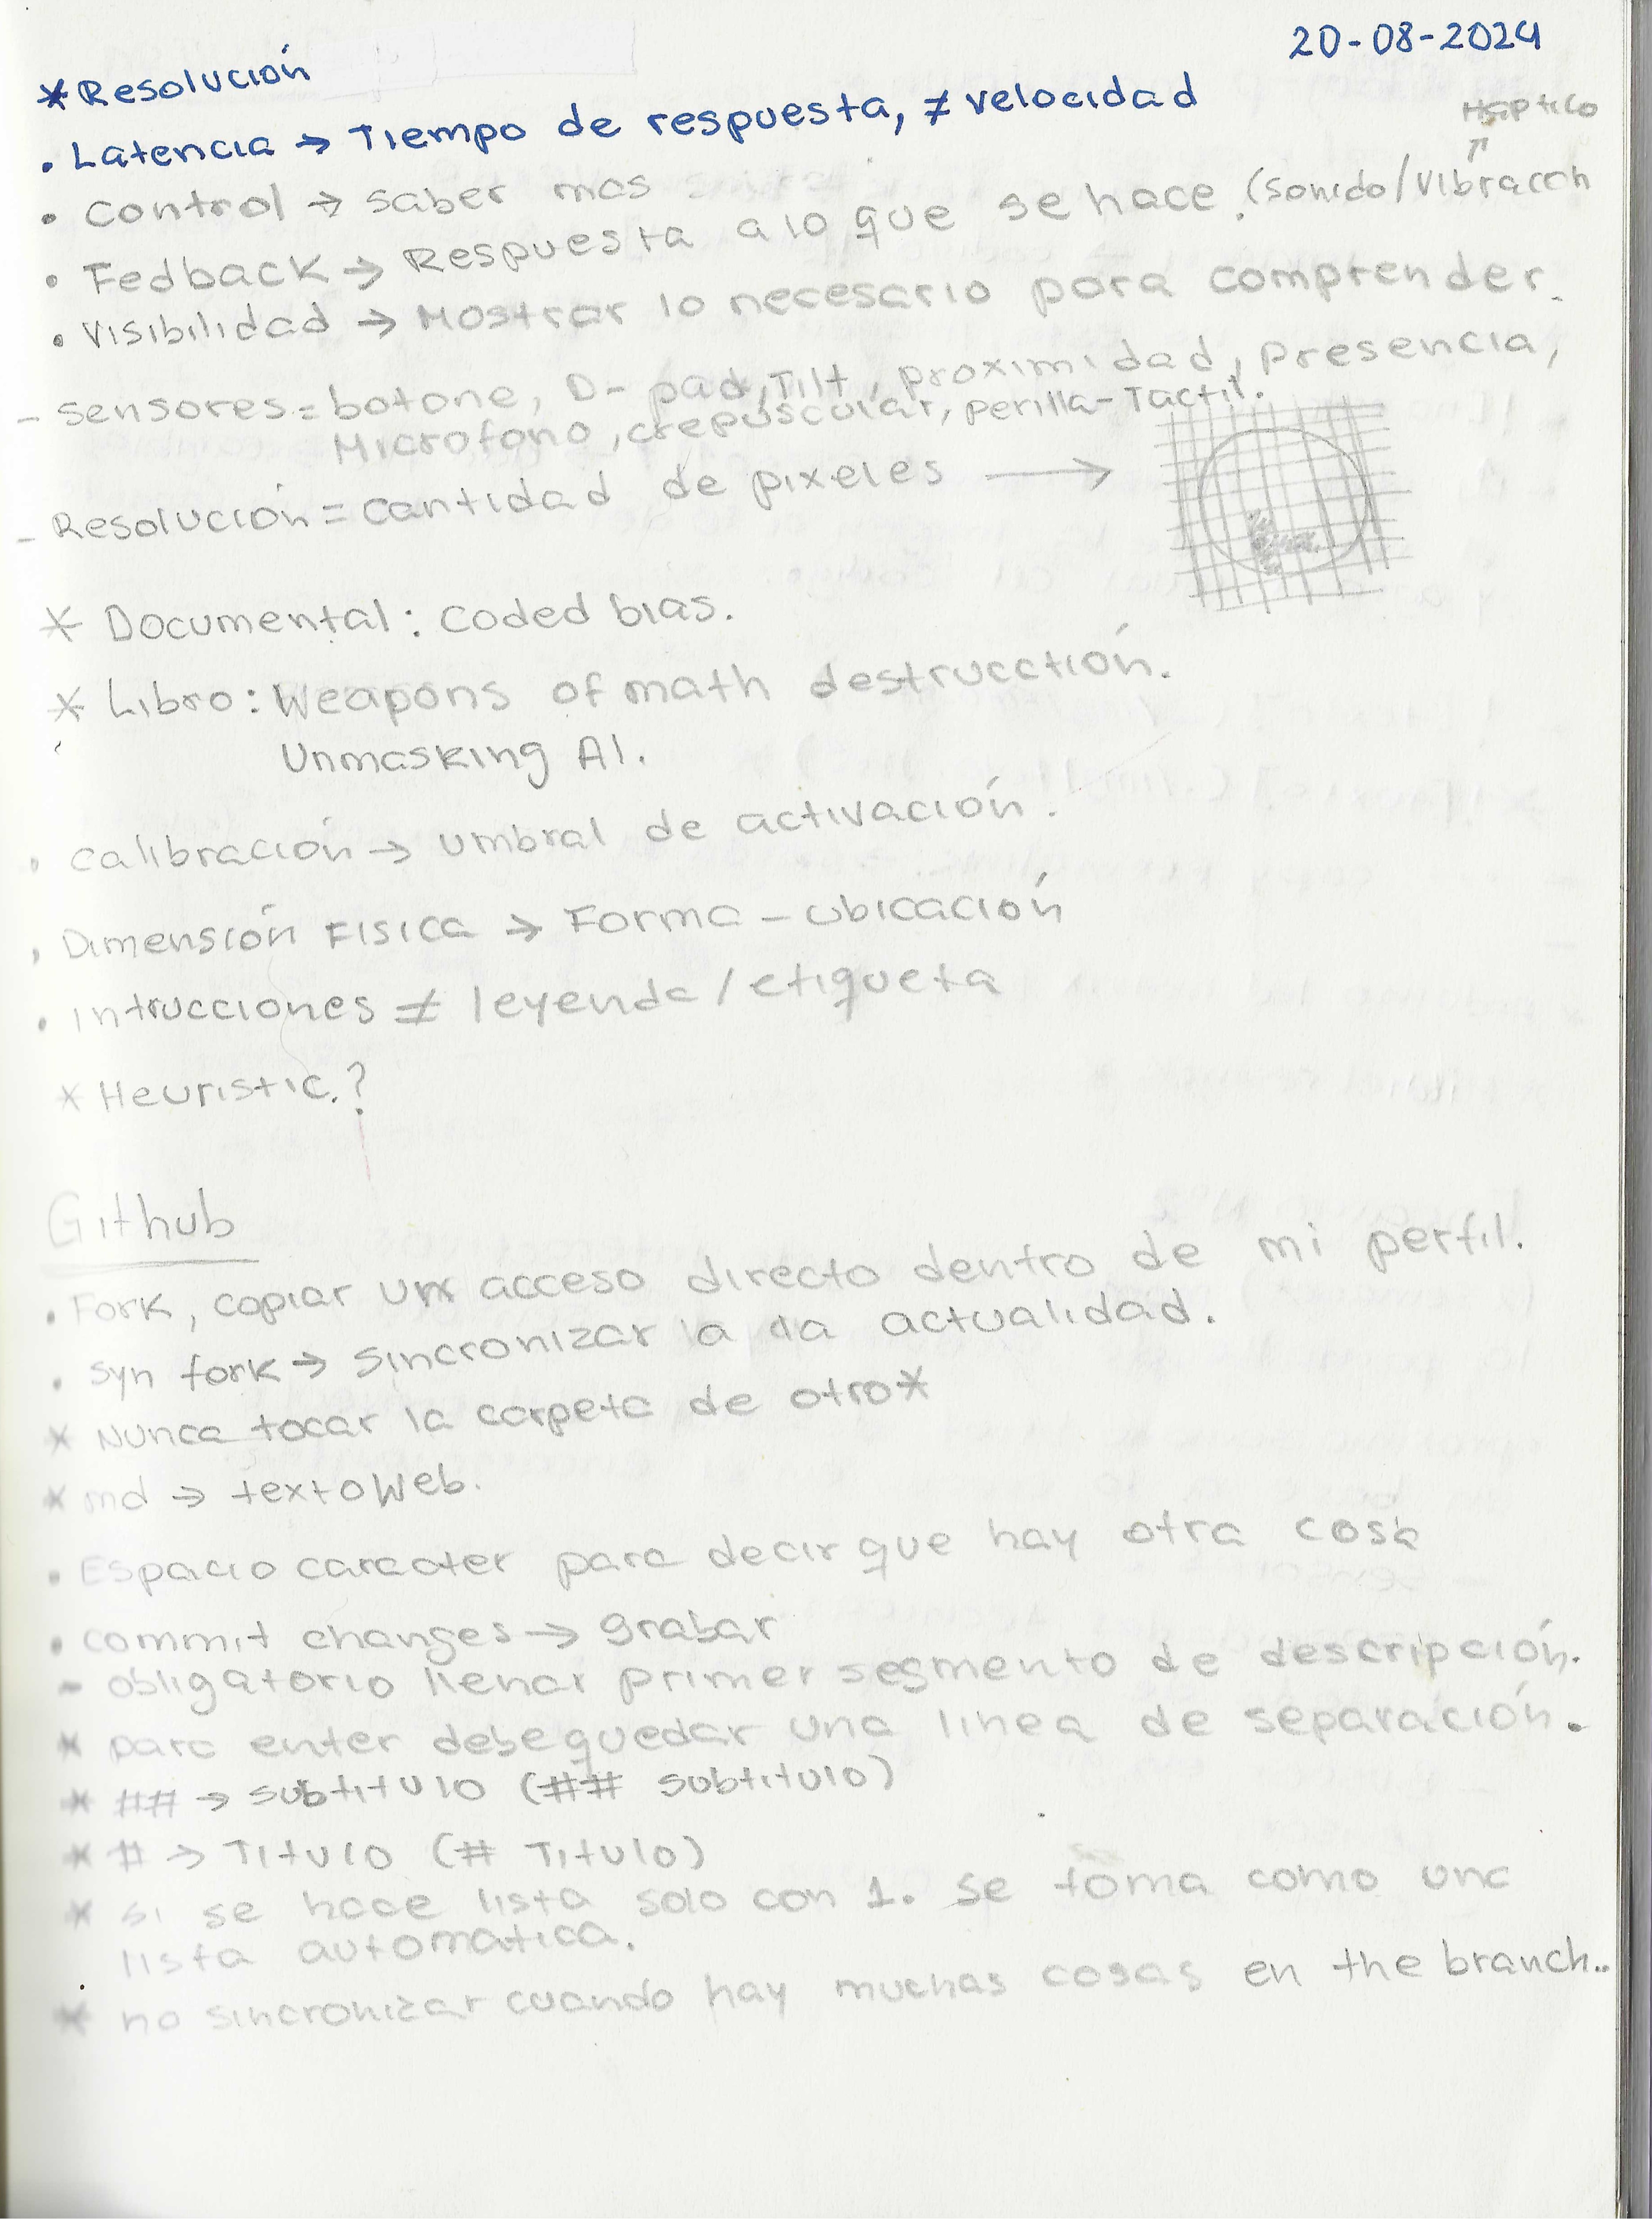 20-08-2024
* Resolución
• Latencia → Tiempo de respuesta, ≠ velocidad
Háptico
↑
• Control → saber mas
• Fedback → Respuesta a lo que se hace. (Sonido/Vibración
• Visibilidad → Mostrar lo necesario para comprender.
- Sensores = botone, D-pad, Tilt, proximidad, presencia,
Microfono, crepúscular, perilla-Tactil.
- Resolución = cantidad de pixeles →
* Documental: Coded bias.
* Libro: Weapons of math destrucctión.
Unmasking AI.
• Calibración → umbral de activación.
• Dimensión FISICA → Forma - ubicación
• Intrucciones ≠ leyenda / etiqueta
* Heuristic.?
Github
• Fork, copiar un acceso directo dentro de mi perfil.
• Syn fork → sincronizar la da actualidad.
* Nunca tocar la carpeta de otro *
* md → texto Web.
• Espacio caracter para decir que hay otra cosa
• commit changes → grabar
- obligatorio llenar primer segmento de descripción.
* para enter debe quedar una linea de separación.
* ## → subtitulo (## subtitulo)
* # → Titulo (# Titulo)
* si se hace lista solo con 1. se toma como una
lista automatica.
* no sincronizar cuando hay muchas cosas en the branch..